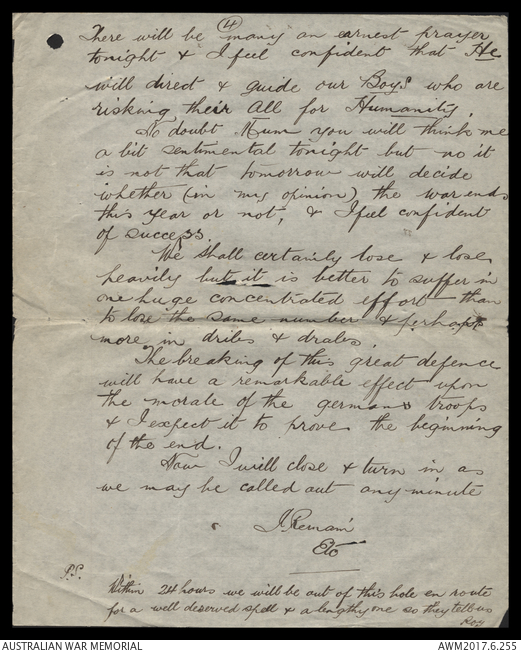 (4)
There will be many an earnest prayer
tonight & I feel confident that He
will direct & guide our Boys who are
risking their All for Humanity.
No doubt Mum you will think me
a bit sentimental tonight but no it
is not that tomorrow will decide
whether (in my opinion) the war ends
this year or not, & I feel confident
of success.
We shall certainly lose & lose
heavily but it is better to suffer in
one huge concentrated effort than
to lose the same number & perhaps
more in dribs & drabs.
The breaking of this great defence
will have a remarkable effect upon
the morale of the germans troops
& I expect it to prove the beginning
of the end.
Now I will close & turn in as
we may be called out any minute
I Remain
Etc
P.S.
Within 24 hours we will be out of this hole en route
for a well deserved spell & a lengthy one so they tell us
Roy
AUSTRALIAN WAR MEMORIAL
AWM2017.6.255